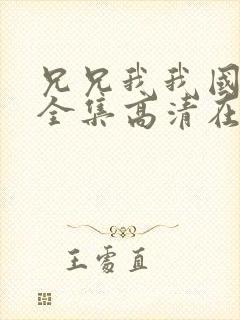 兄兄我我國
全集高清在
王雪直